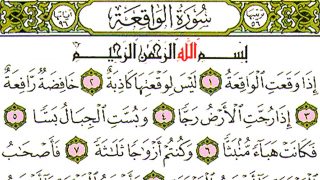 ترتيبها ٥٦ سُورَةُ الوَاقِعَة آياتها ٩٦
بِسْمِ اللَّهِ الرَّحْمَٰنِ الرَّحِيمِ
إِذَا وَقَعَتِ الْوَاقِعَةُ ١ لَيْسَ لِوَقْعَتِهَا كَاذِبَةٌ ٢ خَافِضَةٌ رَّافِعَةٌ
٣ إِذَا رُجَّتِ الْأَرْضُ رَجًّا ٤ وَبُسَّتِ الْجِبَالُ بَسًّا ٥
فَكَانَتْ هَبَاءً مُّنۢبَثًّا ٦ وَكُنتُمْ أَزْوَٰجًا ثَلَٰثَةً ٧ فَأَصْحَٰبُ